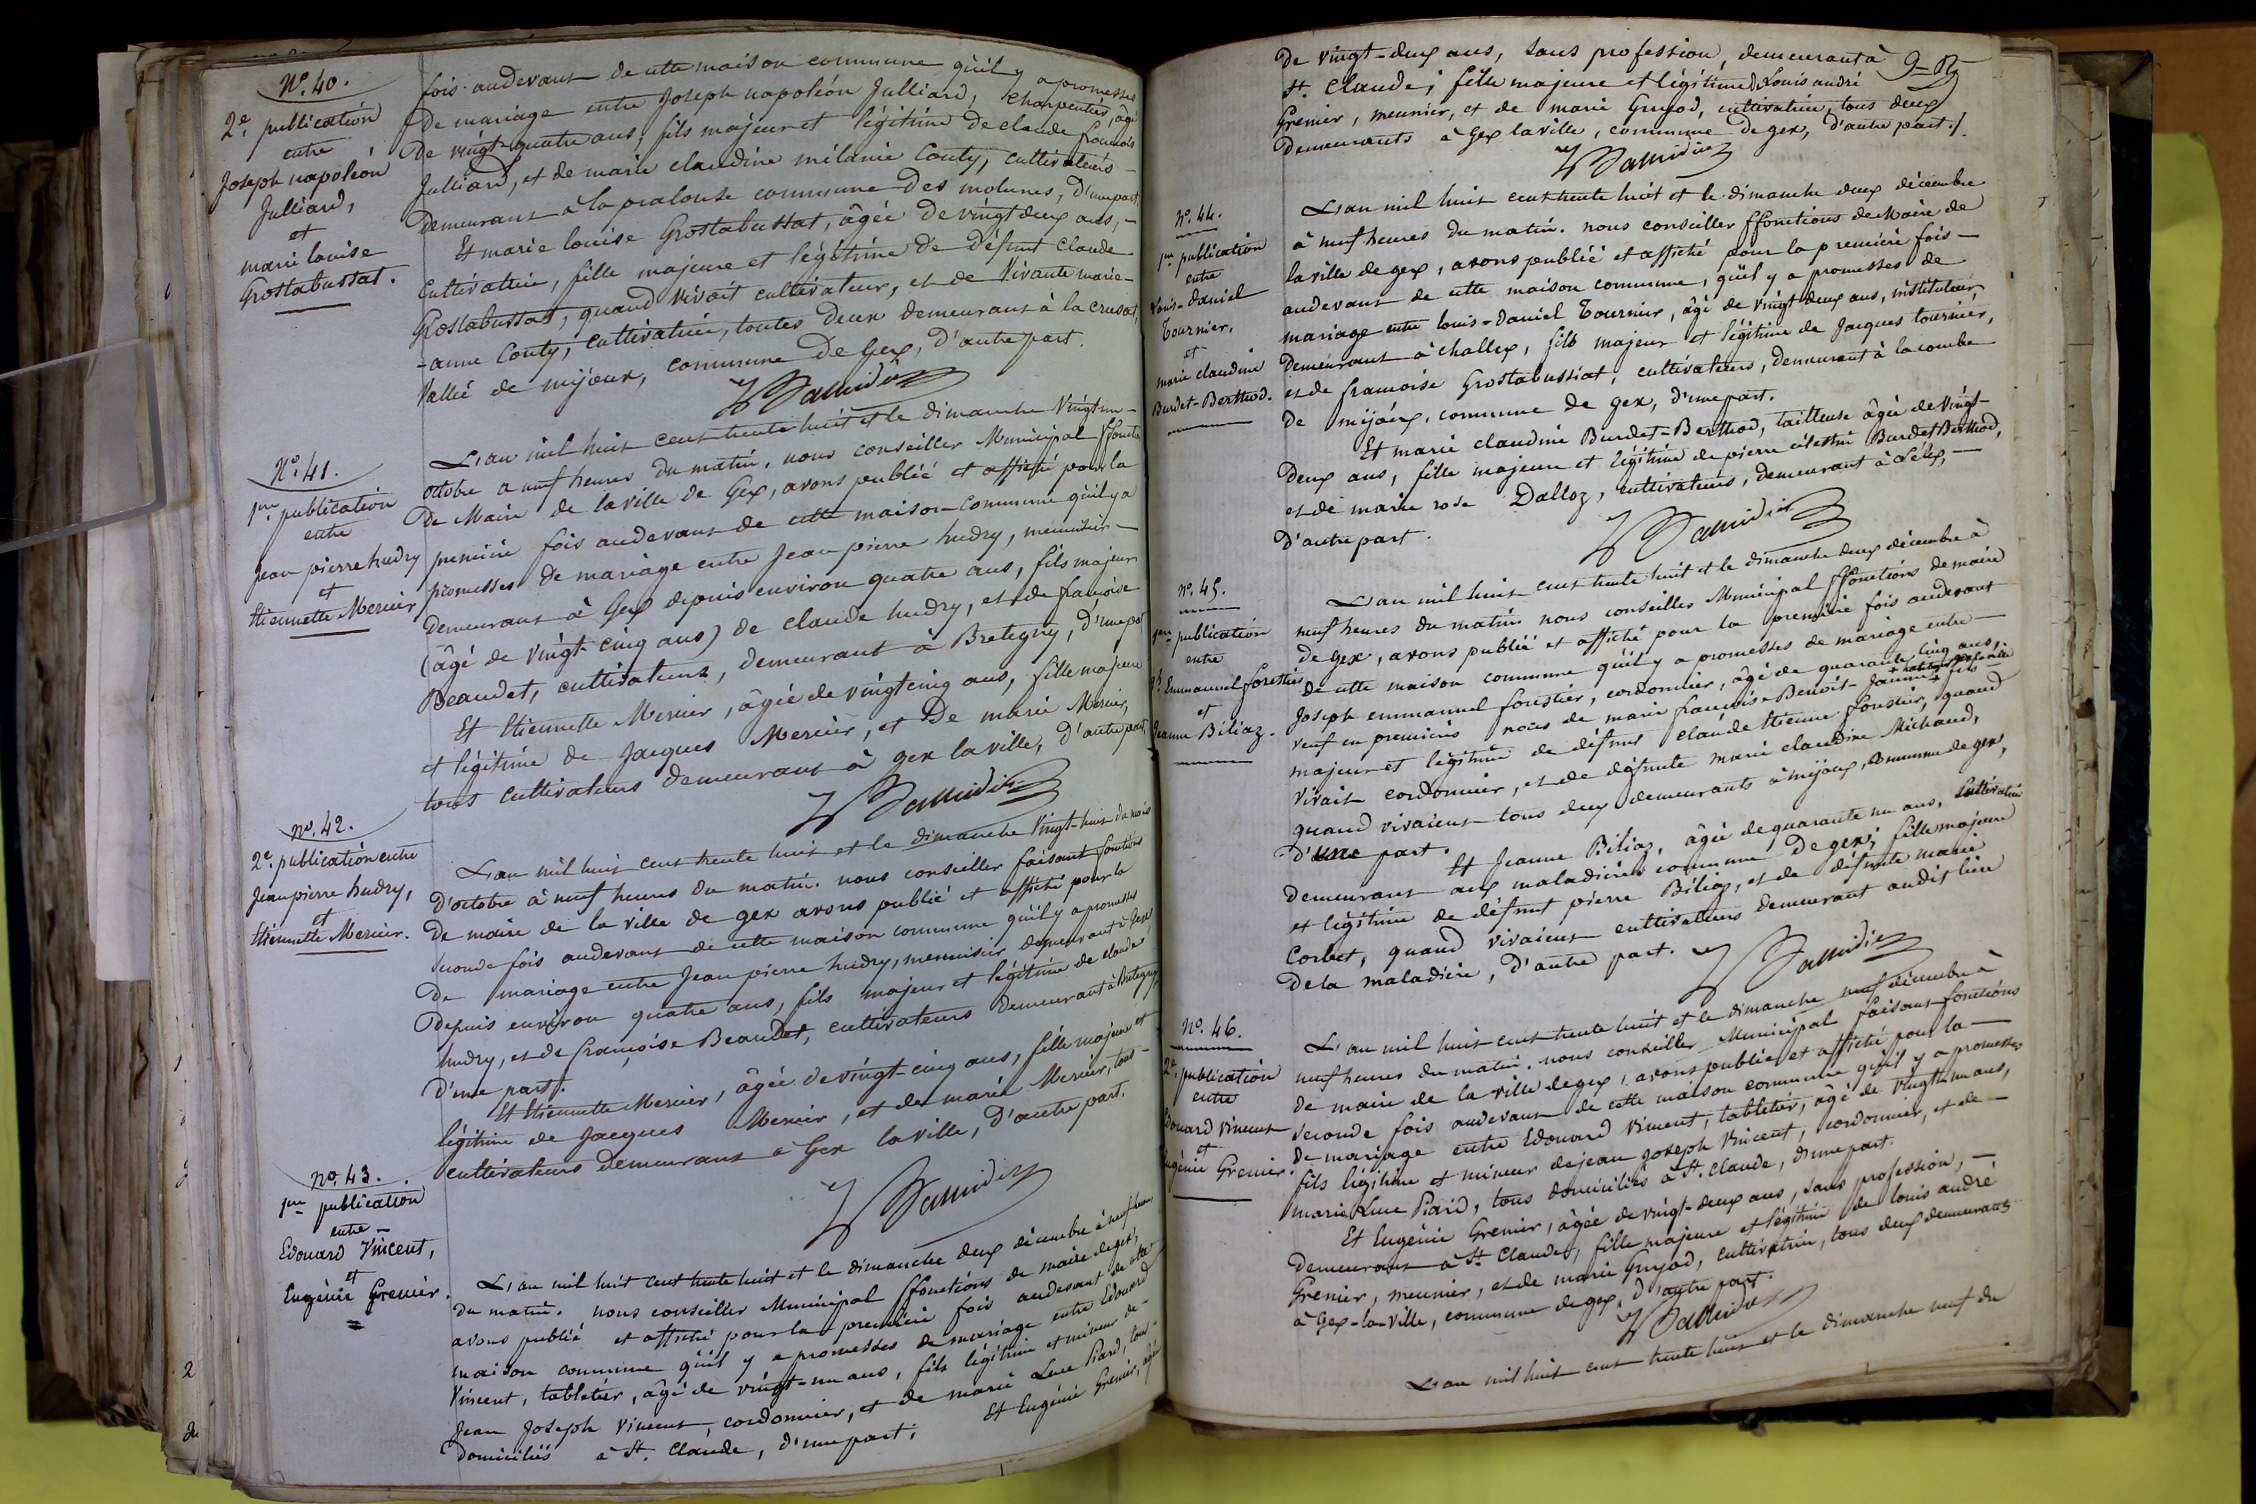 N.° 40.
2e. publication
entre
Joseph napoléon
Julliard,
et
marie louise
Grostabussat.
fois audevant de cette maison commune qu'il y a promesses
de mariage entre Joseph napoléon Julliard, charpentier, âgé
de vingt-quatre ans, fils majeur et légitime de claude francois
Julliard, et de marie claudine mélanie Couty, cultivateurs
demeurant à la pralouse commune des molunes, d'une part,
Et marie louise Grostabussat, âgée de vingt deux ans, -
Cultivatrice, fille majeure et légitime de défunt claude
Grostabussat, quand vivait cultivateur, et de vivante marie-
-anne Couty, cultivatrice, toutes deux demeurant à la
Vallée de mijoux, commune de Gex, d'autre part.
N.° 41.
1ere publication
entre
Jean pierre hudry
et
Etiennette Mercier
L'an mil huit cent trente huit et le dimanche vingt un -
octobre a neuf heures du matin, nous conseiller Municipal ffonctions
de Maire de la ville de Gex, avons publié et affiché pour la
premiere fois audevant de cette maison-commune qu'il y a
promesses de mariage entre Jean pierre hudry, menuisier -
demeurant à Gex depuis environ quatre ans, fils majeur
(âgé de vingt-cinq ans) de claude hudry, et de françoise
Beaudet, cultivateurs, demeurant à Bretegny, d'une part
Et Etiennette Mercier, âgée de vingt cinq ans, fille majeure
et légitime de Jacques Mercier, et De marie Mercier,
tous cultivateurs demeurant à gex la ville, d'autre part,
N.° 42.
2e. publication entre
Jean pierre hudry,
et
Etiennette Mercier.
L'an mil huit cent trente huit et le dimanche vingt-huit du mois
d'octobre à neuf heures du matin. nous conseiller faisant fonctions
de maire de la ville de gex avons publié et affiché pour la
seconde fois audevant de cette maison commune qu'il y a promesses
de mariage entre Jean pierre hudry, menuisier demeurant à Gex
depuis environ quatre ans, fils majeur et légitime de claude
hudry, et de françoise Beaudet, cultivateurs demeurant à Bretegny,
d'une part.
Et Etiennette Mercier, âgée de vingt-cinq ans, fille majeure et
légitime de Jacques Mercier, et de marie Mercier, tous -
cultivateurs demeurant a Gex la ville, d'autre part.
N.° 43.
1ere publication
entre
Edouard Vincent,
et
Eugénie Grenier.
L'an mil huit cent trente huit et le dimanche deux décembre à neuf heures
du matin. nous conseiller Municipal ffonctions de maire de gex,
avons publié et affiché pour la première fois audevant de cette
maison commune qu'il y a promesses de mariage entre Edouard
Vincent, tabletier, âgé de vingt-un ans, fils légitime et mineur de -
Jean Joseph Vincent, cordonnier, et de marie Luce Piard, tous -
domiciliés à St. Claude, d'une part;
Et Eugénie Grenier, âgée
de vingt-deux ans, sans profession, demeurant à
St. Claude; fille majeure et légitime de Louis andré
Grenier, meunier, et de marie Guyod, cultivatrice, tous deux
demeurants à Gex laville, commune de gex, d'autre part./.
N.° 44.
1ere publication
entre
Louis-Daniel
Tournier,
et
marie claudine
Burdet-Berthod.
L'an mil huit cent trente huit et le dimanche deux décembre
à neuf heures du matin. nous conseiller ffonctions de Maire de
la ville de gex, avons publié et affiché pour la première fois -
audevant de cette maison commune, qu'il y a promesses de
mariage entre louis-Daniel Tournier, âgé de vingt-deux ans, instituteur,
demeurant à challex, fils majeur et légitime de Jacques tournier,
et de francoise Grostabussiat, cultivateurs, demeurant à la combe
de mijoux, commune de gex, d'une part.
Et marie claudine Burdet-Berthod, tailleuse âgée de vingt-
deux ans, fille majeure et légitime de pierre célestin Burdet Berthod,
et de marie rose Dalloz, cultivateurs, demeurant à Lélex, -
d'autre part.
N.° 45.
1ere publication
entre
Emmanuel forestier
et
Jeanne Biliaz.
L'an mil huit cent trente huit et le dimanche deux décembre à
neuf heures du matin nous conseiller Municipal ffonctions de maire
de Gex, avons publié et affiché pour la premiere fois audevant
de cette maison commune qu'il y a promesses de mariage entre -
Joseph emmanuel forestier, cordonnier, âgé de quarante cinq ans,
veuf en premieres noces de marie françoise Benoit-Jannin, fils -
majeur et légitime de défunt claude Etienne forestier, quand
vivait cordonnier, et de défunte marie claudine Michaud,
quand vivaient tous deux demeurants à mijoux, commune de gex,
d'une part.
Et Jeanne Biliaz, âgée de quarante un ans, cultivatrice
demeurant aux maladières commune de gex, fille majeure
et légitime de défunt pierre Biliaz, et de défunte marie
Corbet, quand vivaient cultivateurs demeurant audit lieu
de la maladière, d'autre part.
N.° 46.
2e. publication
entre
Edouard Vincent
et
Eugénie Grenier.
L'an mil huit cent trente huit et le dimanche neuf décembre à
neuf heures du matin. nous conseiller Municipal faisant fonctions
de maire de la ville de gex, avons publié et affiché pour la -
seconde fois audevant de cette maison commune qu'il y a promesses
de mariage entre Edouard Vincent, tabletier, âgé de vingt un ans,
fils légitime et mineur de jean joseph Vincent, cordonnier, et de -
marie Luce Piard, tous domiciliés à St. claude, d'une part.
Et Eugénie Grenier, âgée de vingt-deux ans, sans profession, -
demeurant à St. Claude, fille majeure et légitime de louis andré
Grenier, meunier, et de marie Guyod, cultivatrice, tous deux demeurants
à Gex-la-ville, commune de gex, d'autre part.
L'an mil huit cent trente huit et le dimanche neuf du